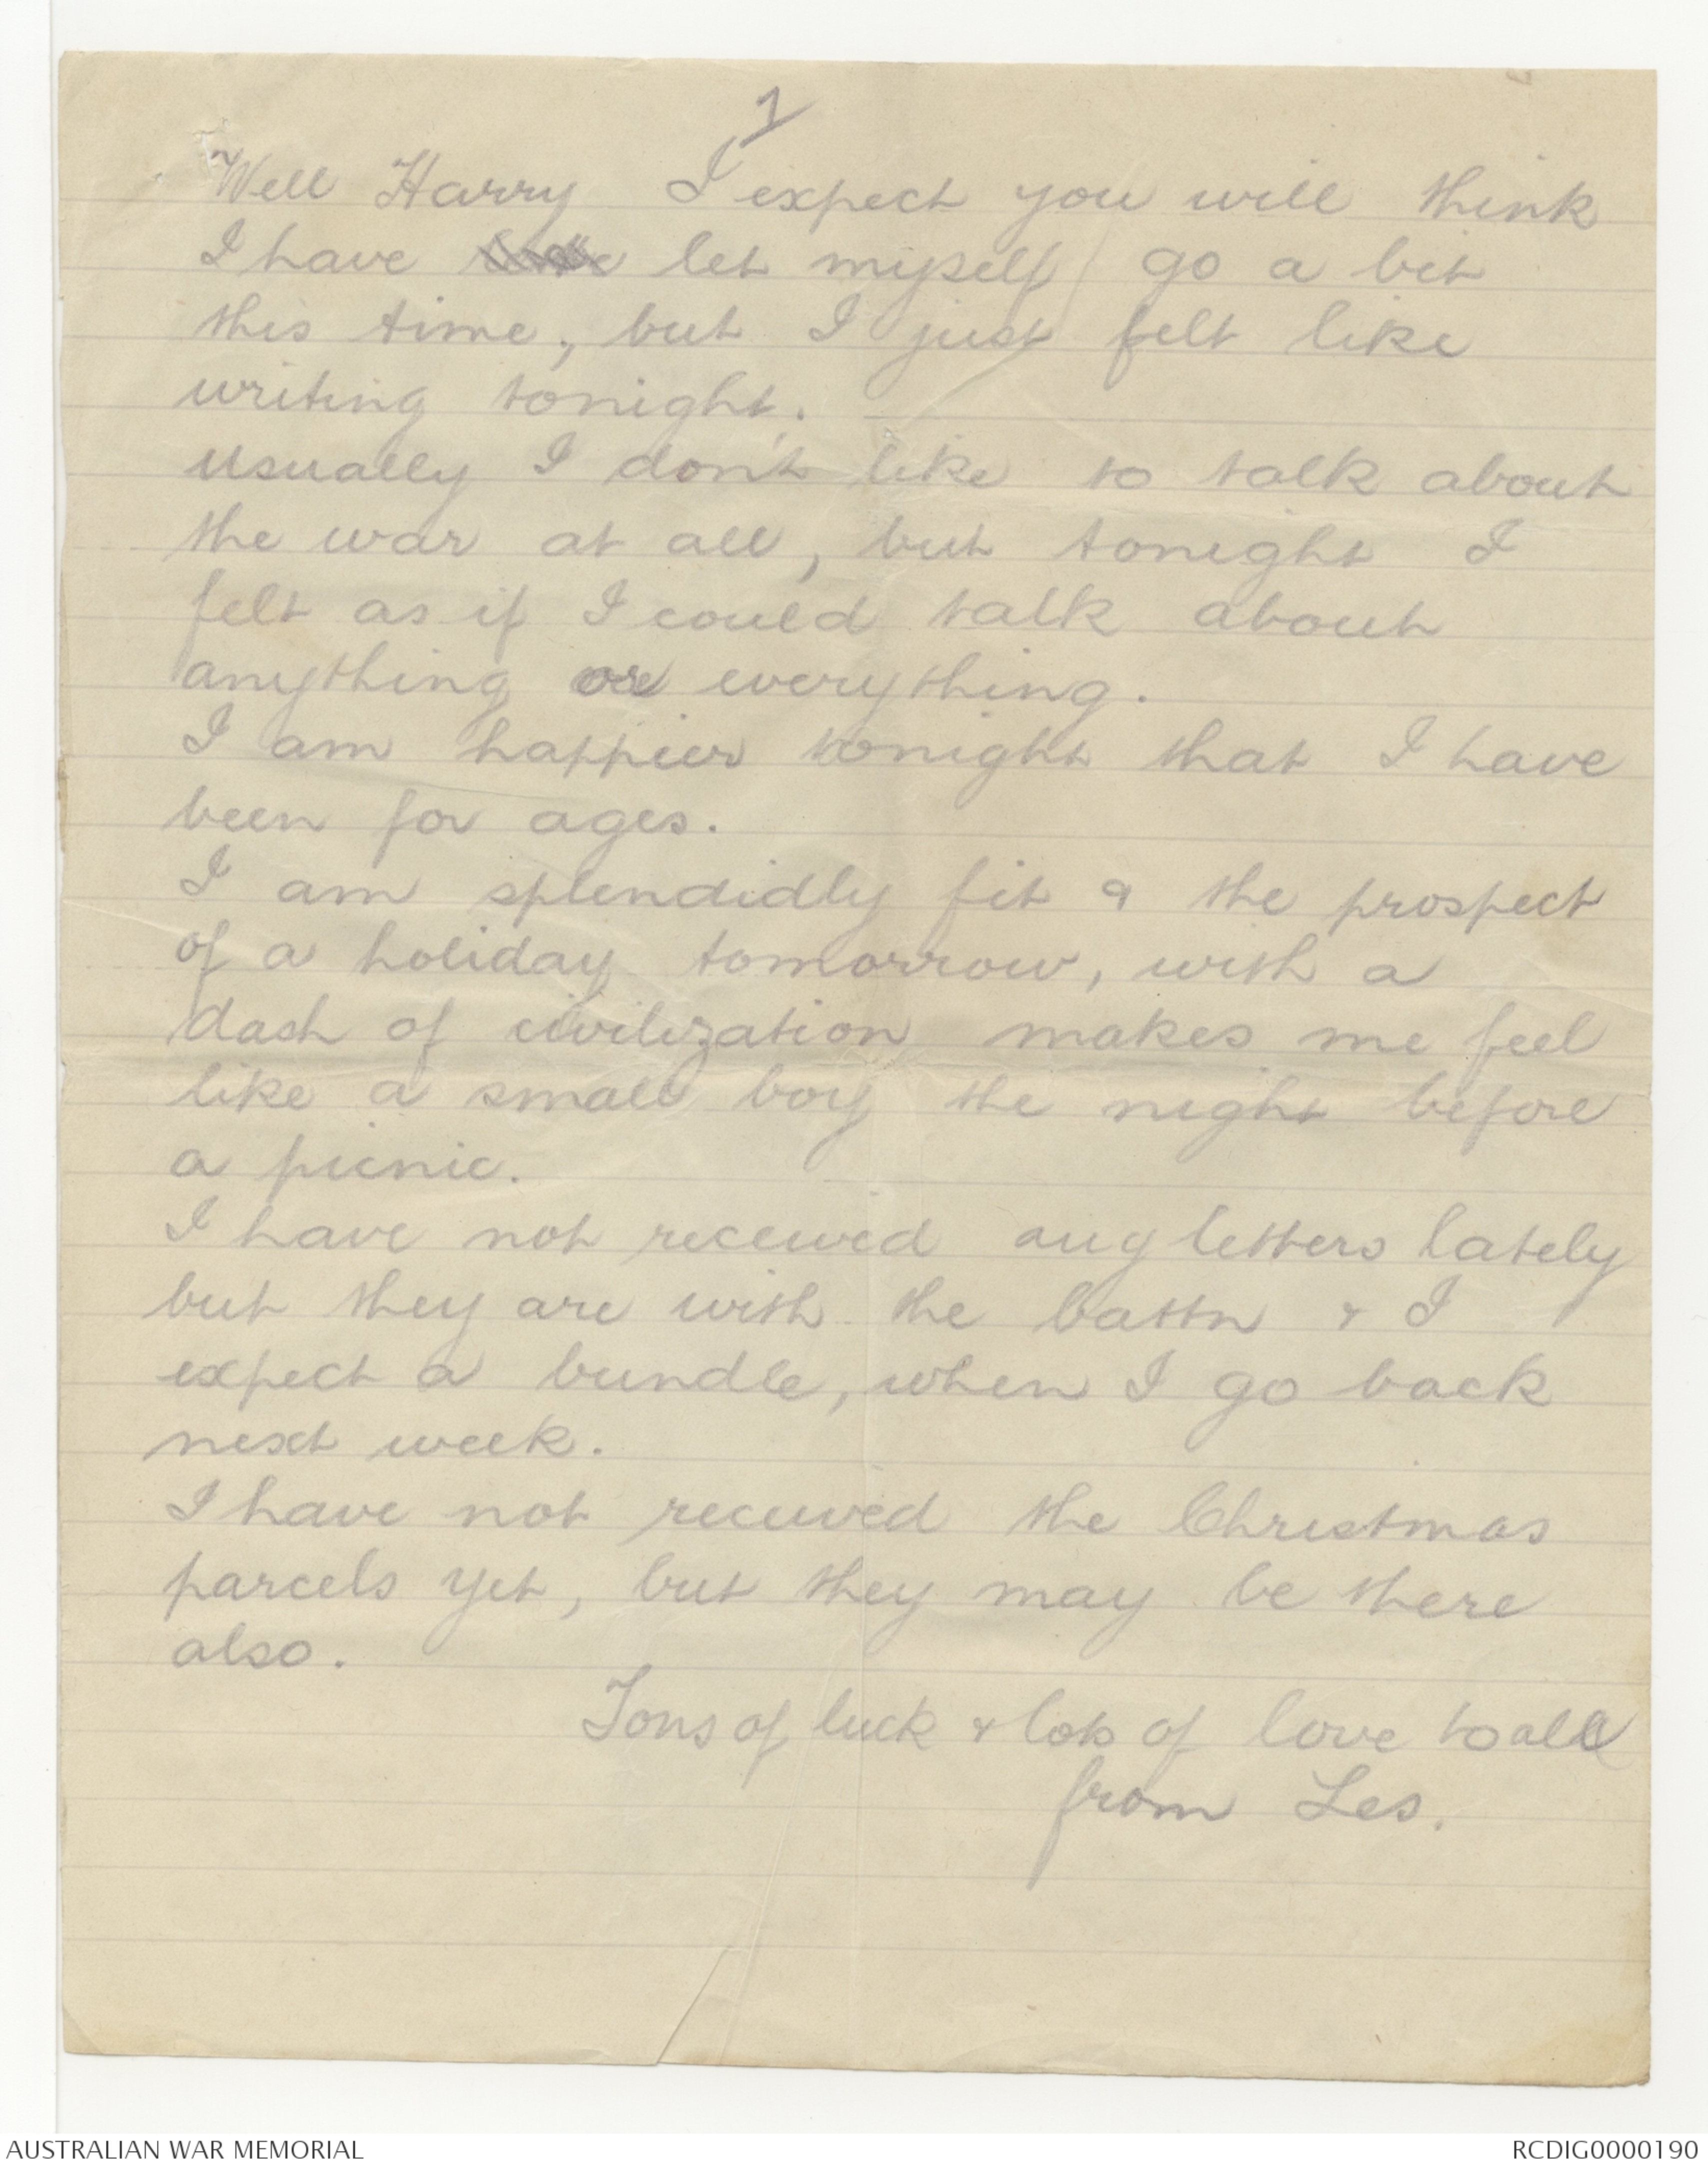 7
Well Harry I expect you will think
I have let myself go a bit
this time, but I just felt like
writing tonight.
usually I don't like to talk about
the war at all, but tonight I
felt as if I could talk about
anything or everything.
I am happier tonight that I have
been for ages.
I am splendidly fit & the prospect
of a holiday tomorrow, with a
dash of civilization makes me feel
like a small boy the night before
a picnic.
I have not received any letters lately
but they are with the battn & I
expect a bundle, when I go back
next week.
I have not received the Christmas
parcels yet, but they may be there
also.
Tons of luck & lots of love to all
from Les.
AUSTRALIAN WAR MEMORIAL
RCDIG0000190